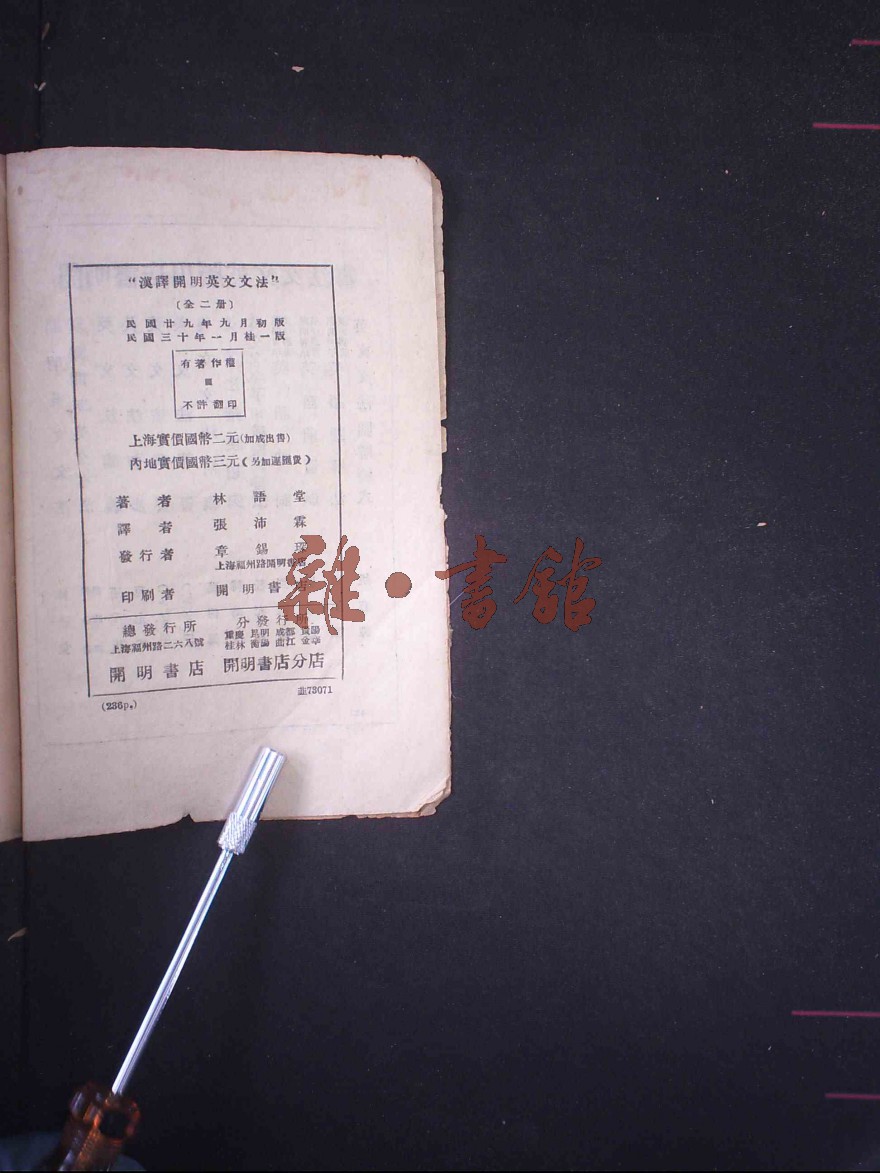 “漢譯開明英文文法”
(全二册)
民國廿九年九月初版
民國三十年一月桂一版
有著作權
不許翻印
上海實價國幣二元(加成出售)
內地實價國幣三元(另加運匯費)
著者 林語堂
譯者 張沛霖
發行者 章錫
上海福州路開明書店
印刷者 開明書店
總發行所 分發行所
上海福州路二六八號 重慶 昆明 成都 貴陽
桂林 衡陽 曲江 金華
開明書店 開明書店分店
(236p.) 73071
雜·書館